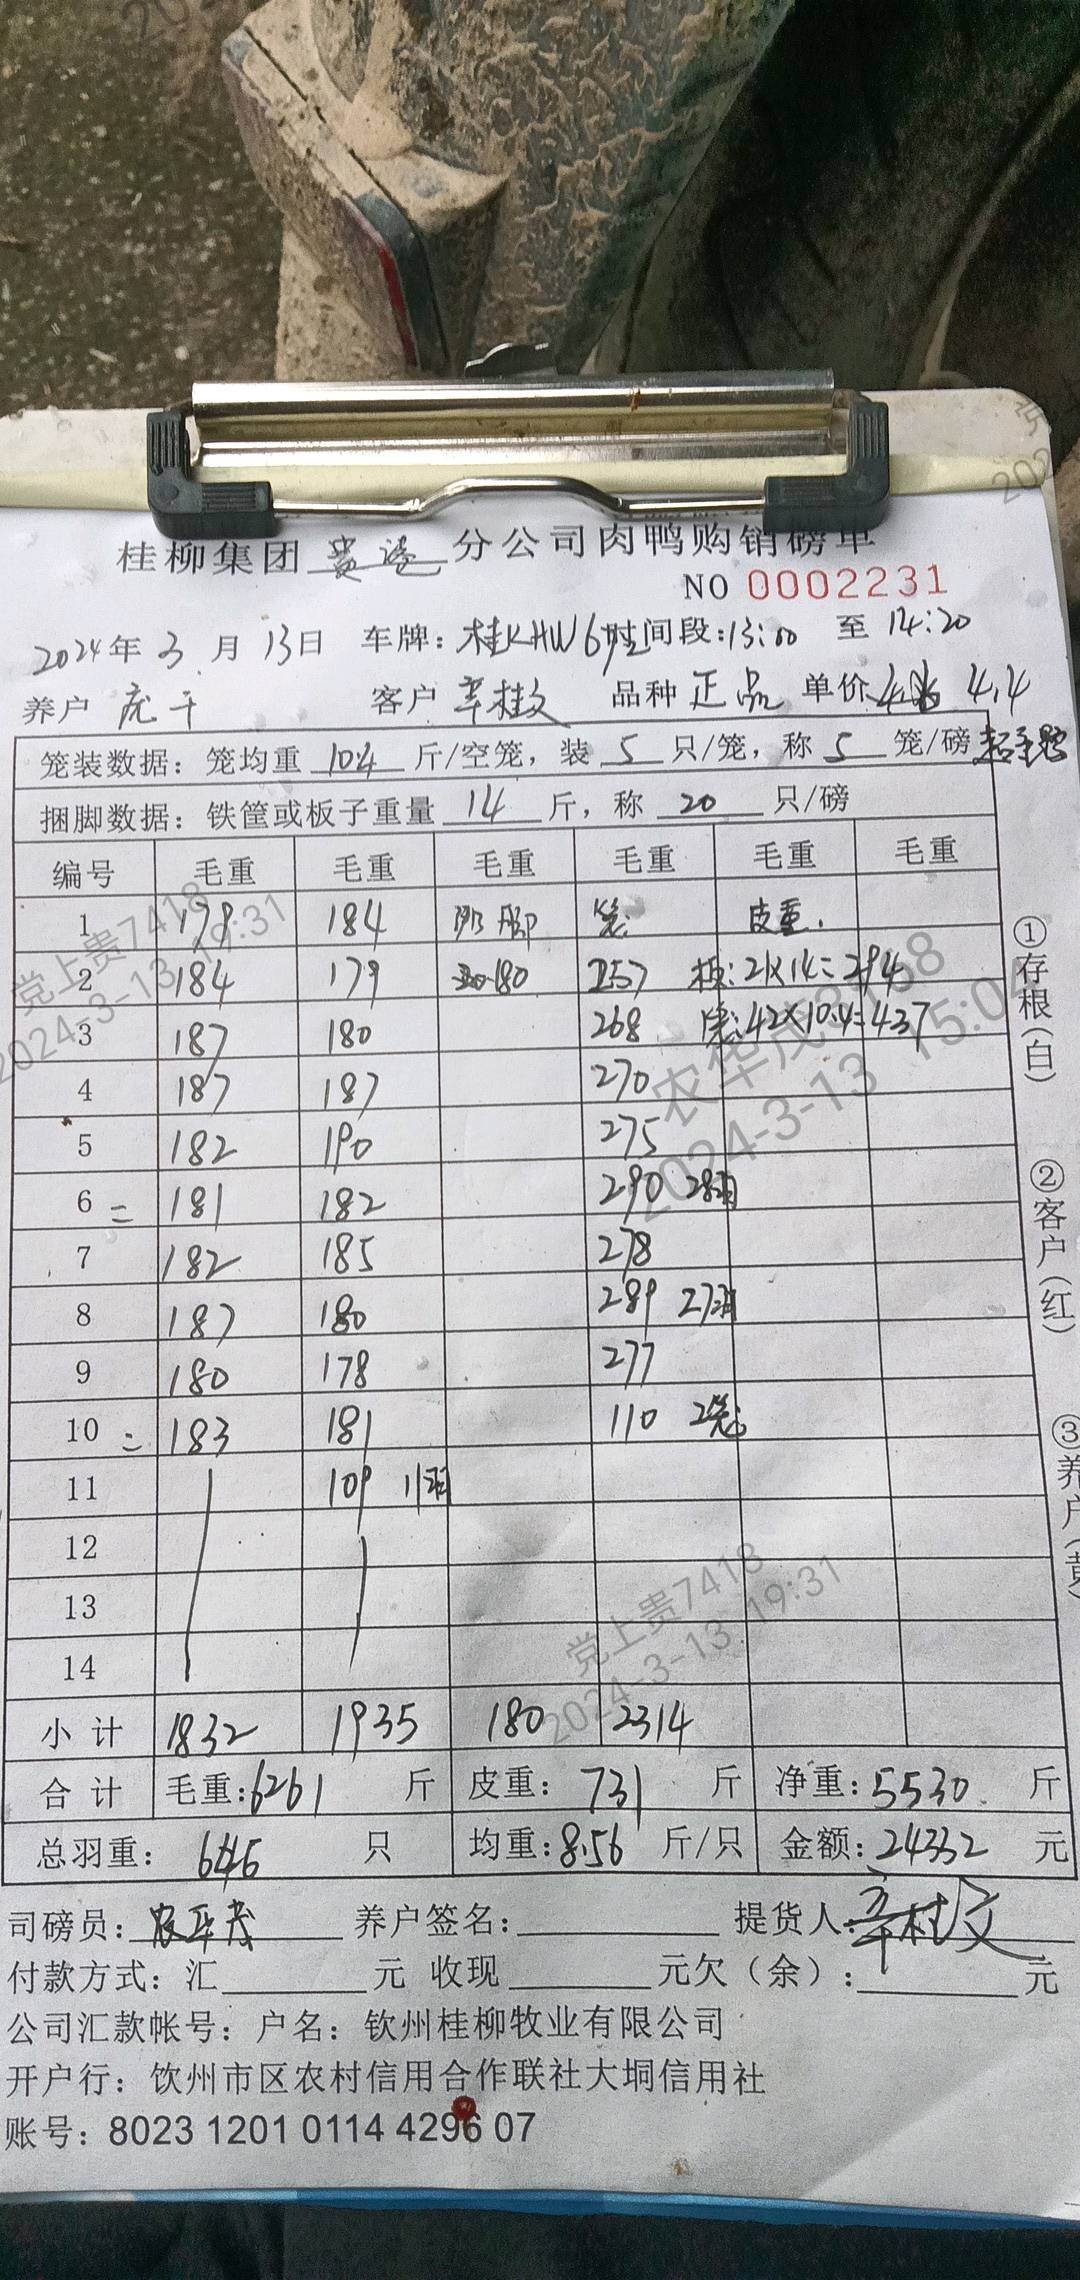 桂柳集团 贵港 分公司肉鸭购销磅单
NO 0002231
2024年3月13日 车牌: 桂KHW6 时间段:13:00 至 14:20
养户 客户 辛桂文 品种 正品 单价 4.4
笼装数据: 笼均重 10.4 斤/空笼, 装 5 只/笼, 称 5 笼/磅
捆脚数据: 铁筐或板子重量 14 斤, 称 20 只/磅
编号 毛重 毛重 毛重 毛重 毛重 毛重
1 179 184 脚 笼 皮重.
2 184 179 180 257 板:21×14=294
3 187 180 268 笼:42×10.4=437
4 187 187 270
5 182 190 275
6 = 181 182 290 28羽
7 182 185 278
8 187 180 289 27羽
9 180 178 277
10 = 183 181 110 2笼
11 109 11羽
12
13
14
小计 1832 1935 180 2314
合计 毛重:6261 斤 皮重: 731 斤 净重:5530 斤
总羽重: 646 只 均重:8.56 斤/只 金额:24332 元
司磅员: 农华茂 养户签名: 提货人:
付款方式: 汇 元 收现 元欠(余): 元
公司汇款帐号: 户名: 钦州桂柳牧业有限公司
开户行: 钦州市区农村信用合作联社大垌信用社
账号: 8023 1201 0114 4296 07
①存根(白)
②客户(红)
③养户(黄)
党上贵7418
2024-3-13 19:31
农华茂3168
2024-3-13 15:04
党上贵7418
2024-3-13 19:31